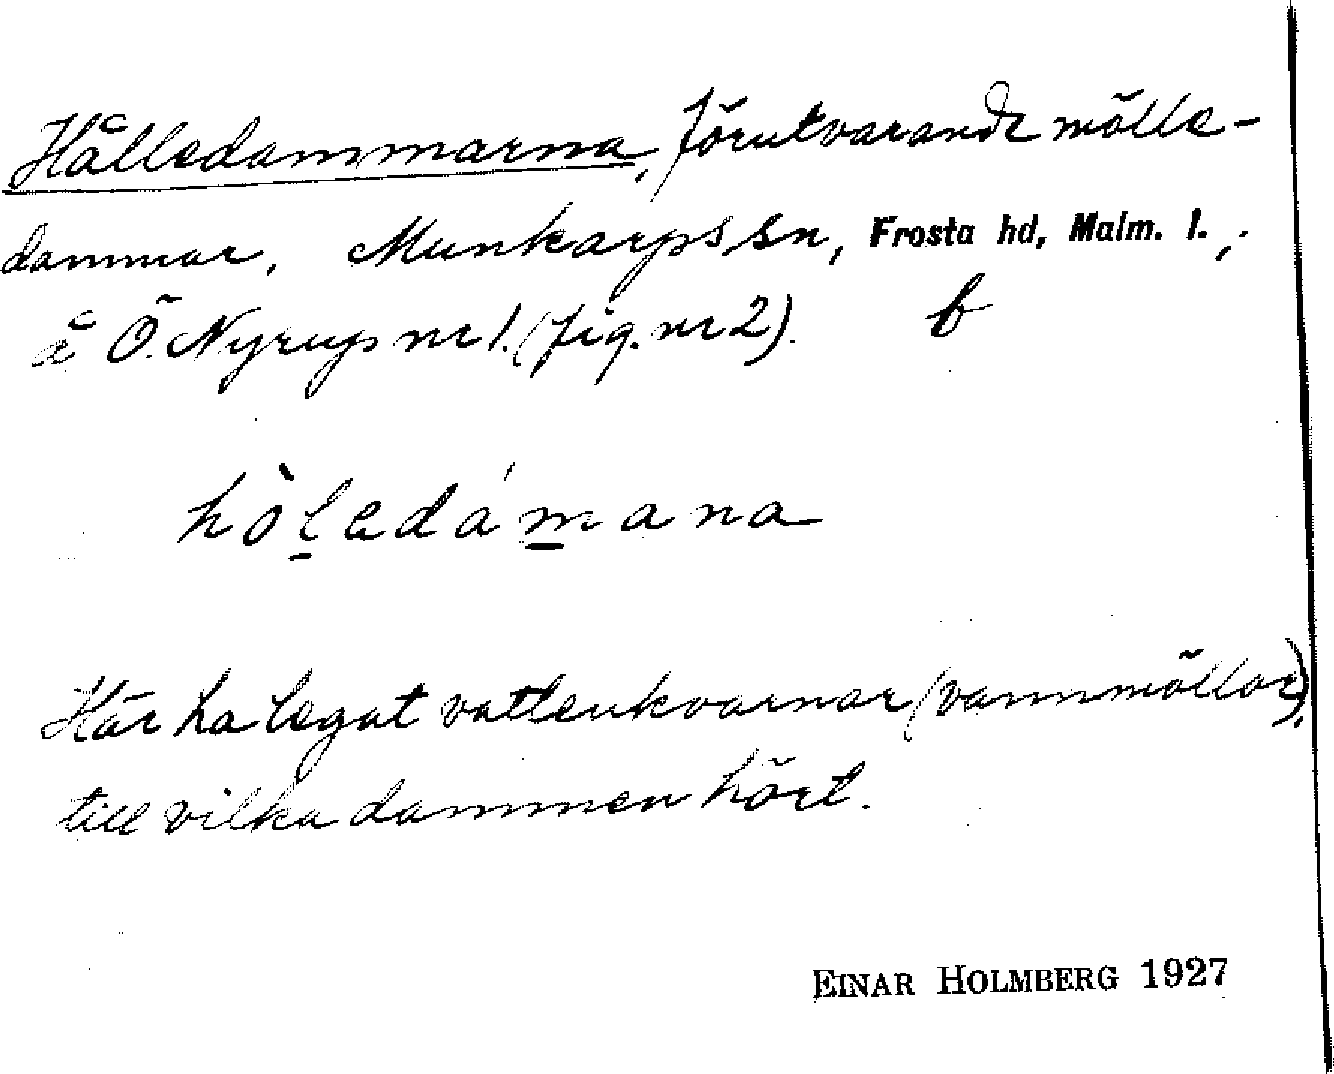 Hålledammarna, förutvarande mölle-
dammar, Munkarps sn, Frosta hd, Malm. l.,
å Ö. Nyrup nr 1. (fig. nr 2). b
hòledámana
Här ha legat vattenkvarnar (vannmöllor),
till vilka dammen hört.
EINAR HOLMBERG 1927